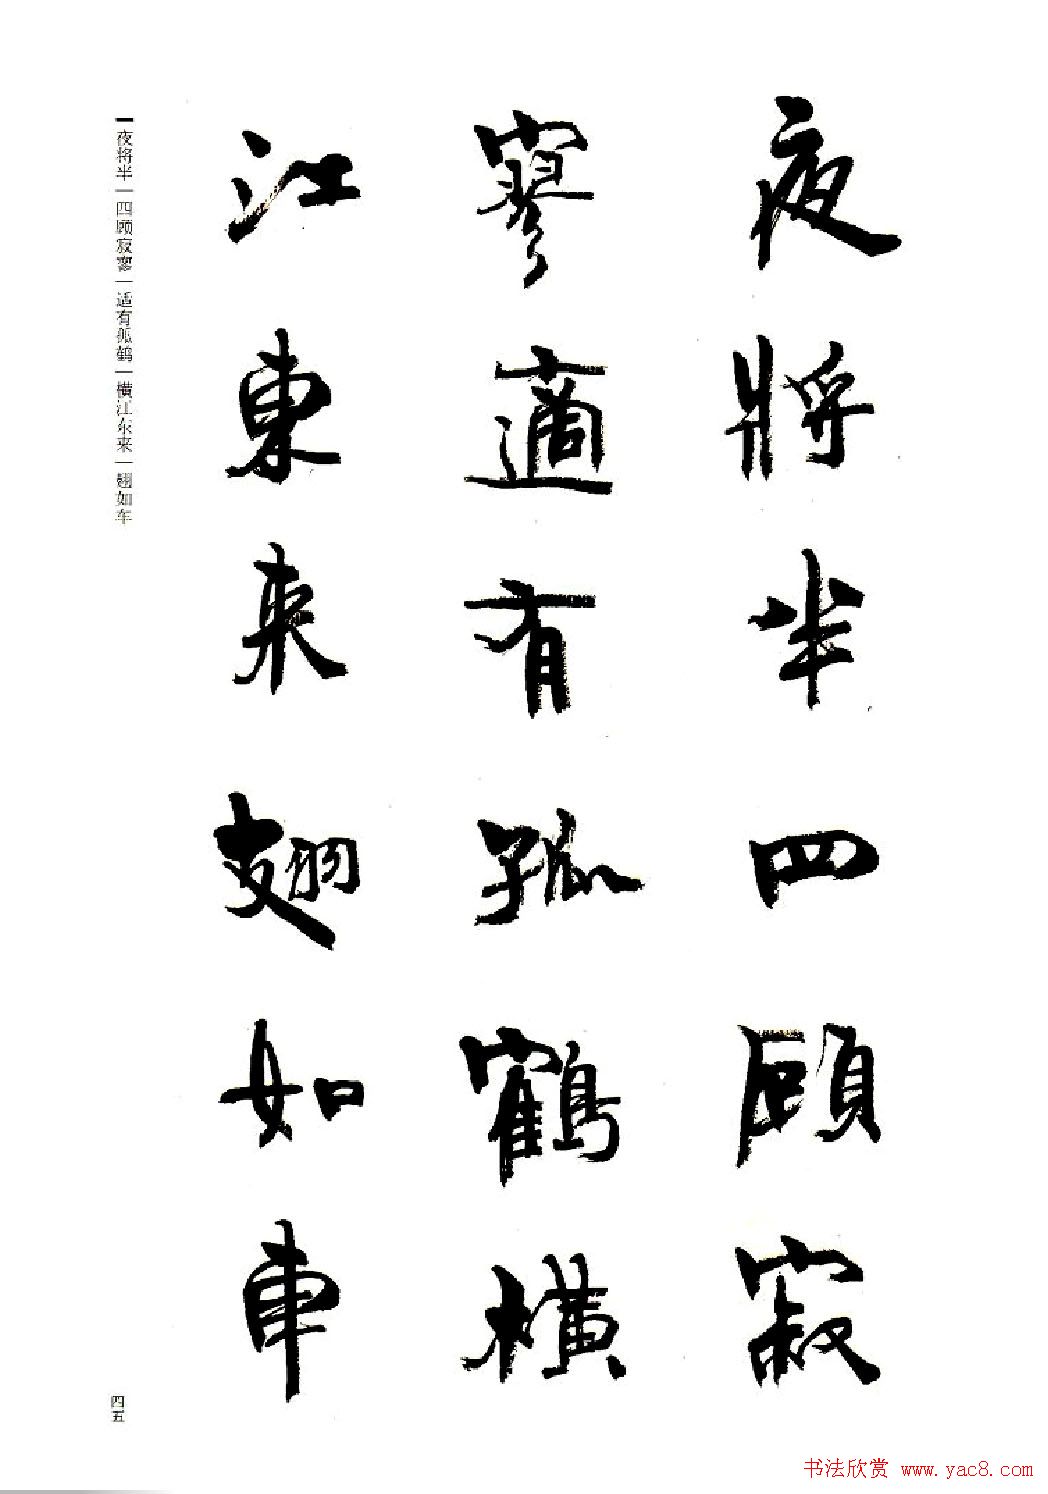 夜將半四顧寂
寥適有孤鶴橫
江東來翅如車
夜将半|四顾寂寥|适有孤鹤|横江东来|翅如车
四五
书法欣赏 www.yac8.com